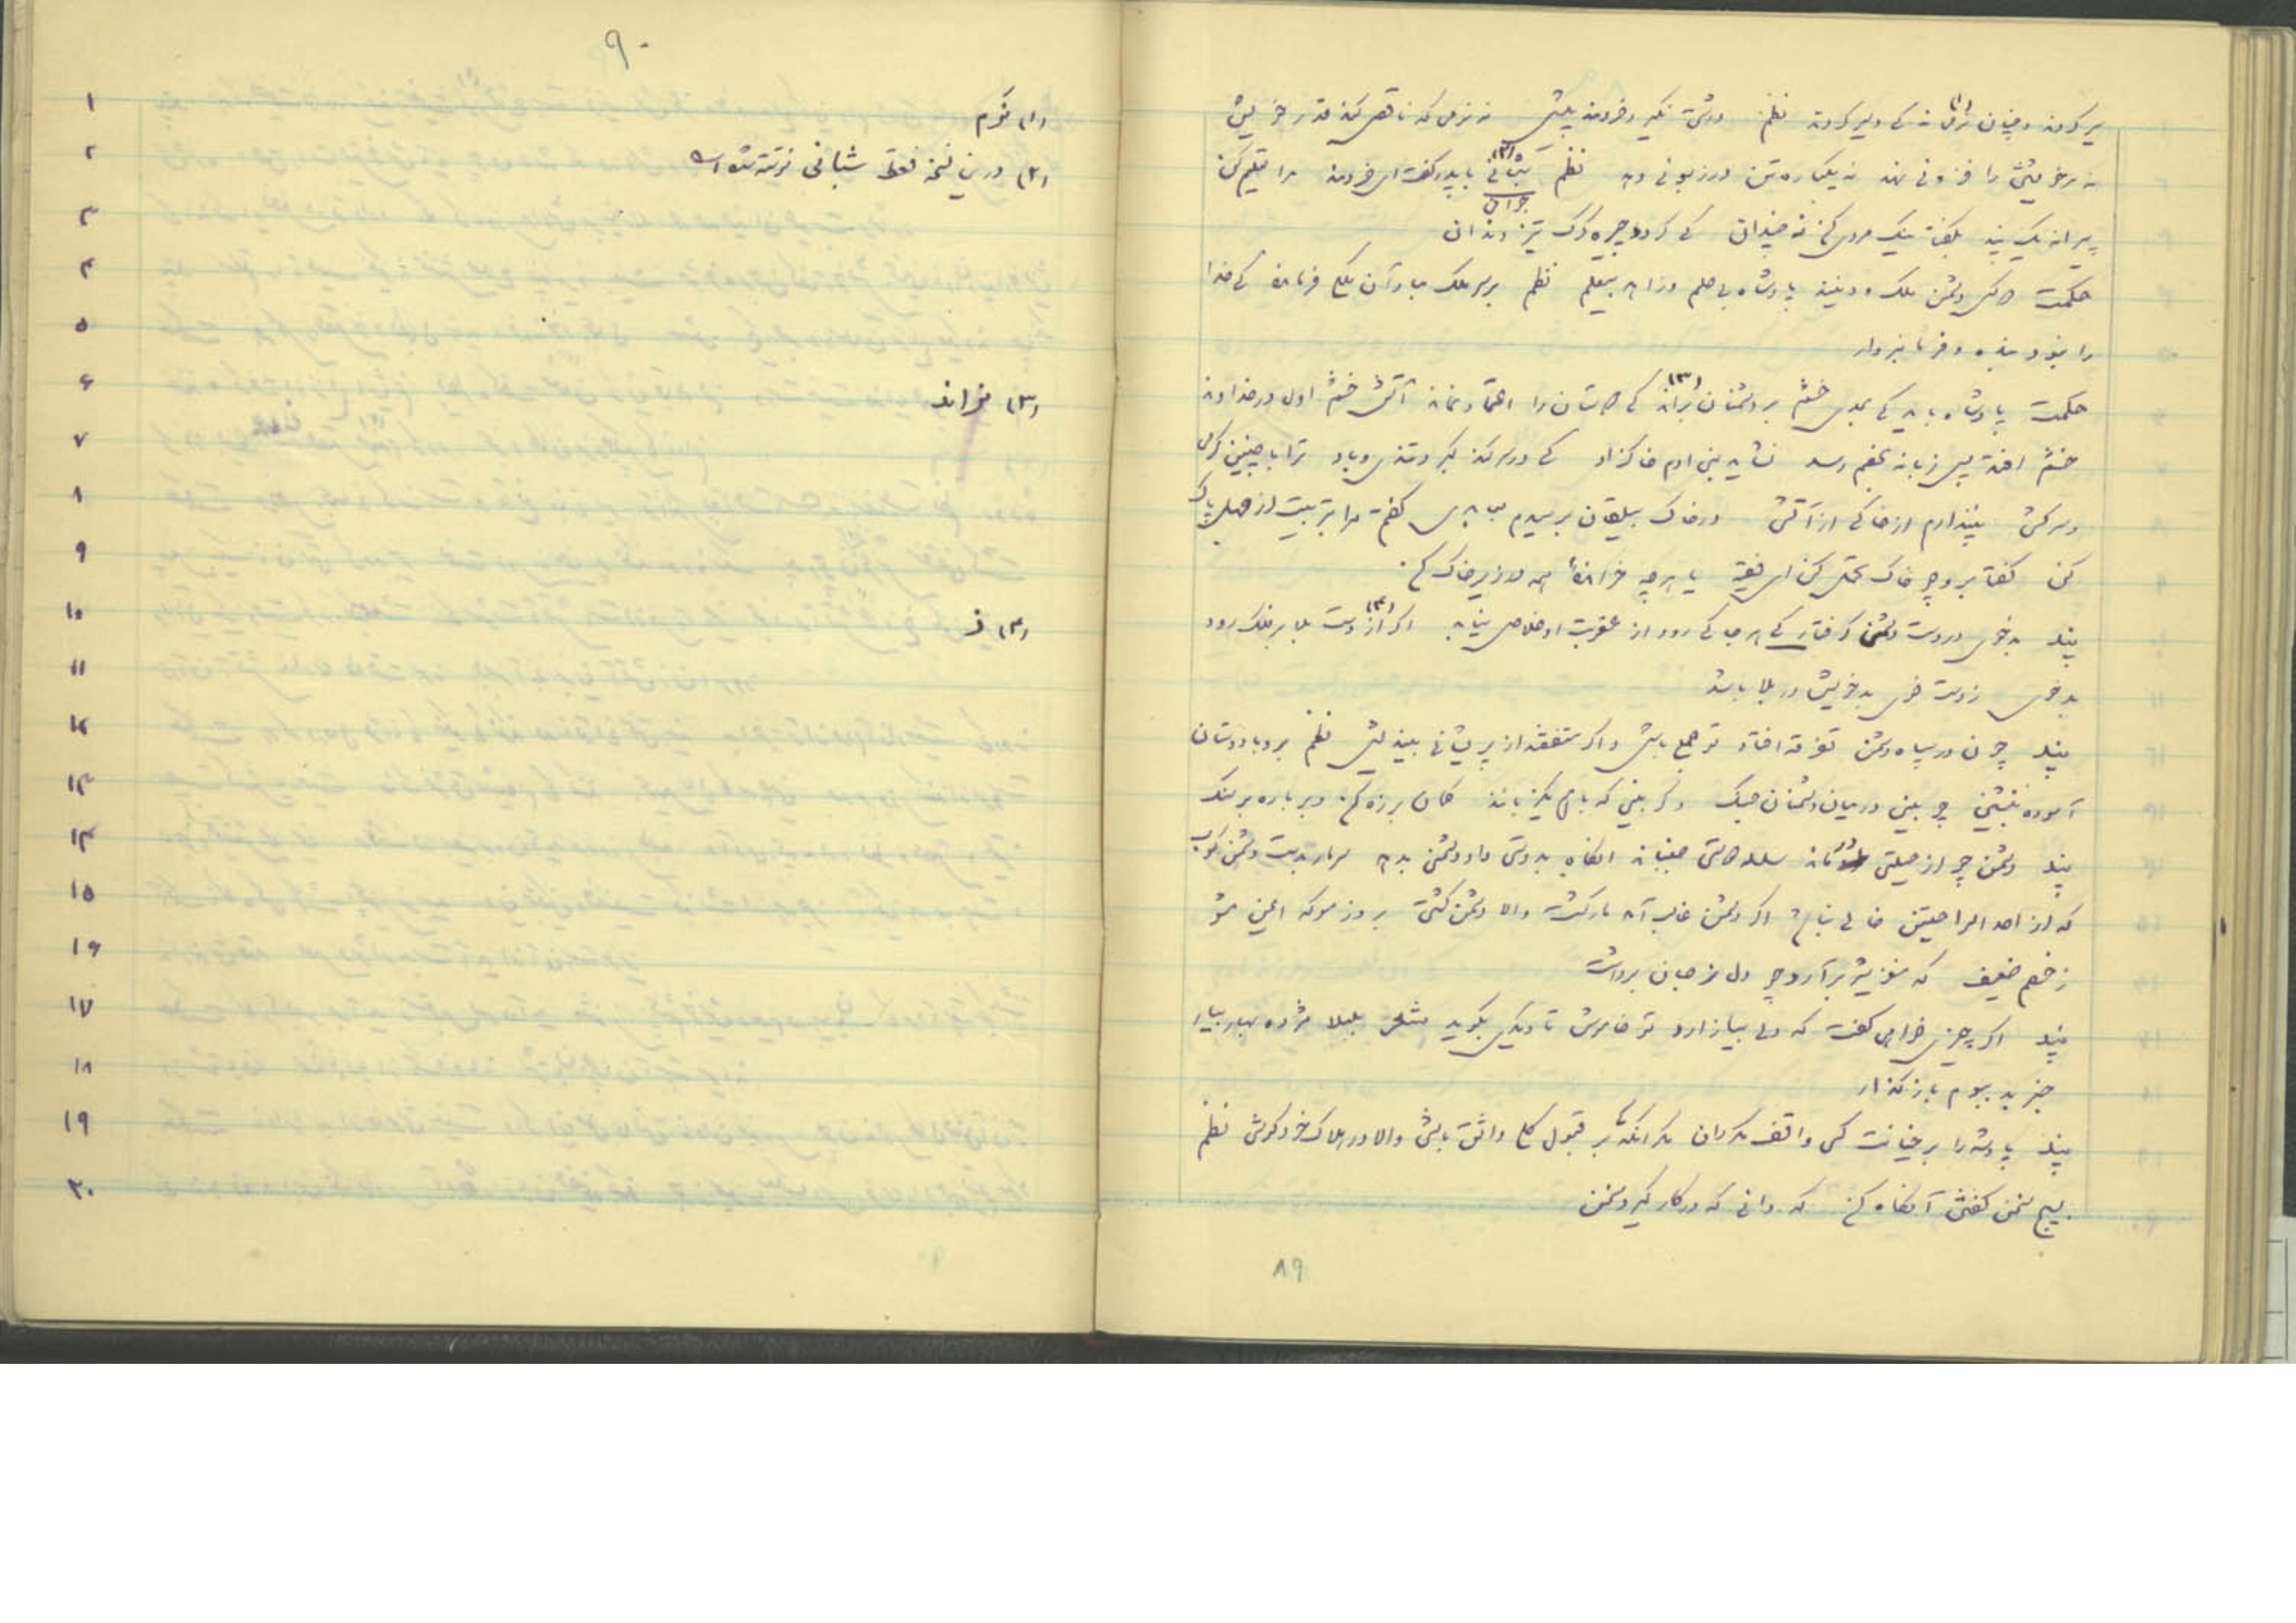 سیر گردند و چنان نرمی نه که دلیر گردند نظم درشتی نگیرد خردمند پیش نه نرمی که ناقص کند قدر خویش
نه مر خویشتن را فزونی نهد نه یکباره تن در زبونی دهد نظم شبانی (۲) با پدر گفت ای خردمند مرا تعلیم کن
جوانی
پیرانه یک پند بگفتا نیک مردی کن نه چندان که گردد چیره گرگ تیز دندان
حکمت دو کس دشمن ملک و دینند پادشاه بی حلم و زاهد بیعلم نظم بر سر ملک مباد آن ملک فرمانده که خدا
را نبود بنده و فرمانبردار
حکمت پادشاه باید که بحدی خشم بر دشمنان براند (۳) که دوستان را اعتماد نماند آتش خشم اول در خداوند
خشم افتد پس زبانه بخصم رسد نشاید بنی ادم خاکزاد که در سر کند کبر و تندی و باد ترا با چنین گرمی
و سرکشی نپندارم از خاکی از آتشی در خاک بیلقان برسیدم بعابدی گفتم مرا بتربیت از جهل پاک
کن گفتا برو چو خاک تحمل کن ای فقیه یا هر چه خوانده همه در زیر خاک کن.
پند بدخوی در دست دشمنی گرفتار که هر جا که رود از عقوبت او خلاص نیابد اگر از (۴) دست بلا بر فلک رود
بدخوی ز دست خوی بد خویش در بلا باشد
پند چون در سپاه دشمن تفرقه افتاد تو جمع باش و اگر متفقند از پریشانی بیندیش نظم برو با دوستان
آسوده بنشین چو بینی در میان دشمنان جنگ و گر بینی که با هم یکزبانند کمان بر زه کن و بر باره بر سنگ
پند دشمن چو از حیلتی در ماند سلسله دوستی جنباند انگاه بدوستی داد دشمنی بدهد سر مار بدست دشمن بکوب
که از احد الراحتین خالی نباشد اگر دشمن غالب آمد مار کشت والا دشمن کشتی بروز معرکه ایمن مشو
ز خصم ضعیف که مغز شیر برآرد چو دل ز جان برداشت
پند اگر چیزی خواهی گفت که دلی بیازارد تو خاموش تا دیگری بگوید شعر بلبلا مژده بهار بیار
خبر بد ببوم باز گذار
پند پادشه را بر خیانت کسی واقف مگردان مگر انکه بر قبول کل واثق باشی والا در هلاک خود کوشی نظم
بسیج سخن گفتن آنگاه کن که دانی که در کار گیرد سخن
۸۹
۹۰
۱ (۱) نرم
۲ (۲) درین نسخه فقط شبانی نوشته شده است
۳
۴
۵
۶ (۳) نراند
۷
۸
۹
۱۰ (۴) ز
۱۱
۱۲
۱۳
۱۴
۱۵
۱۶
۱۷
۱۸
۱۹
۲۰